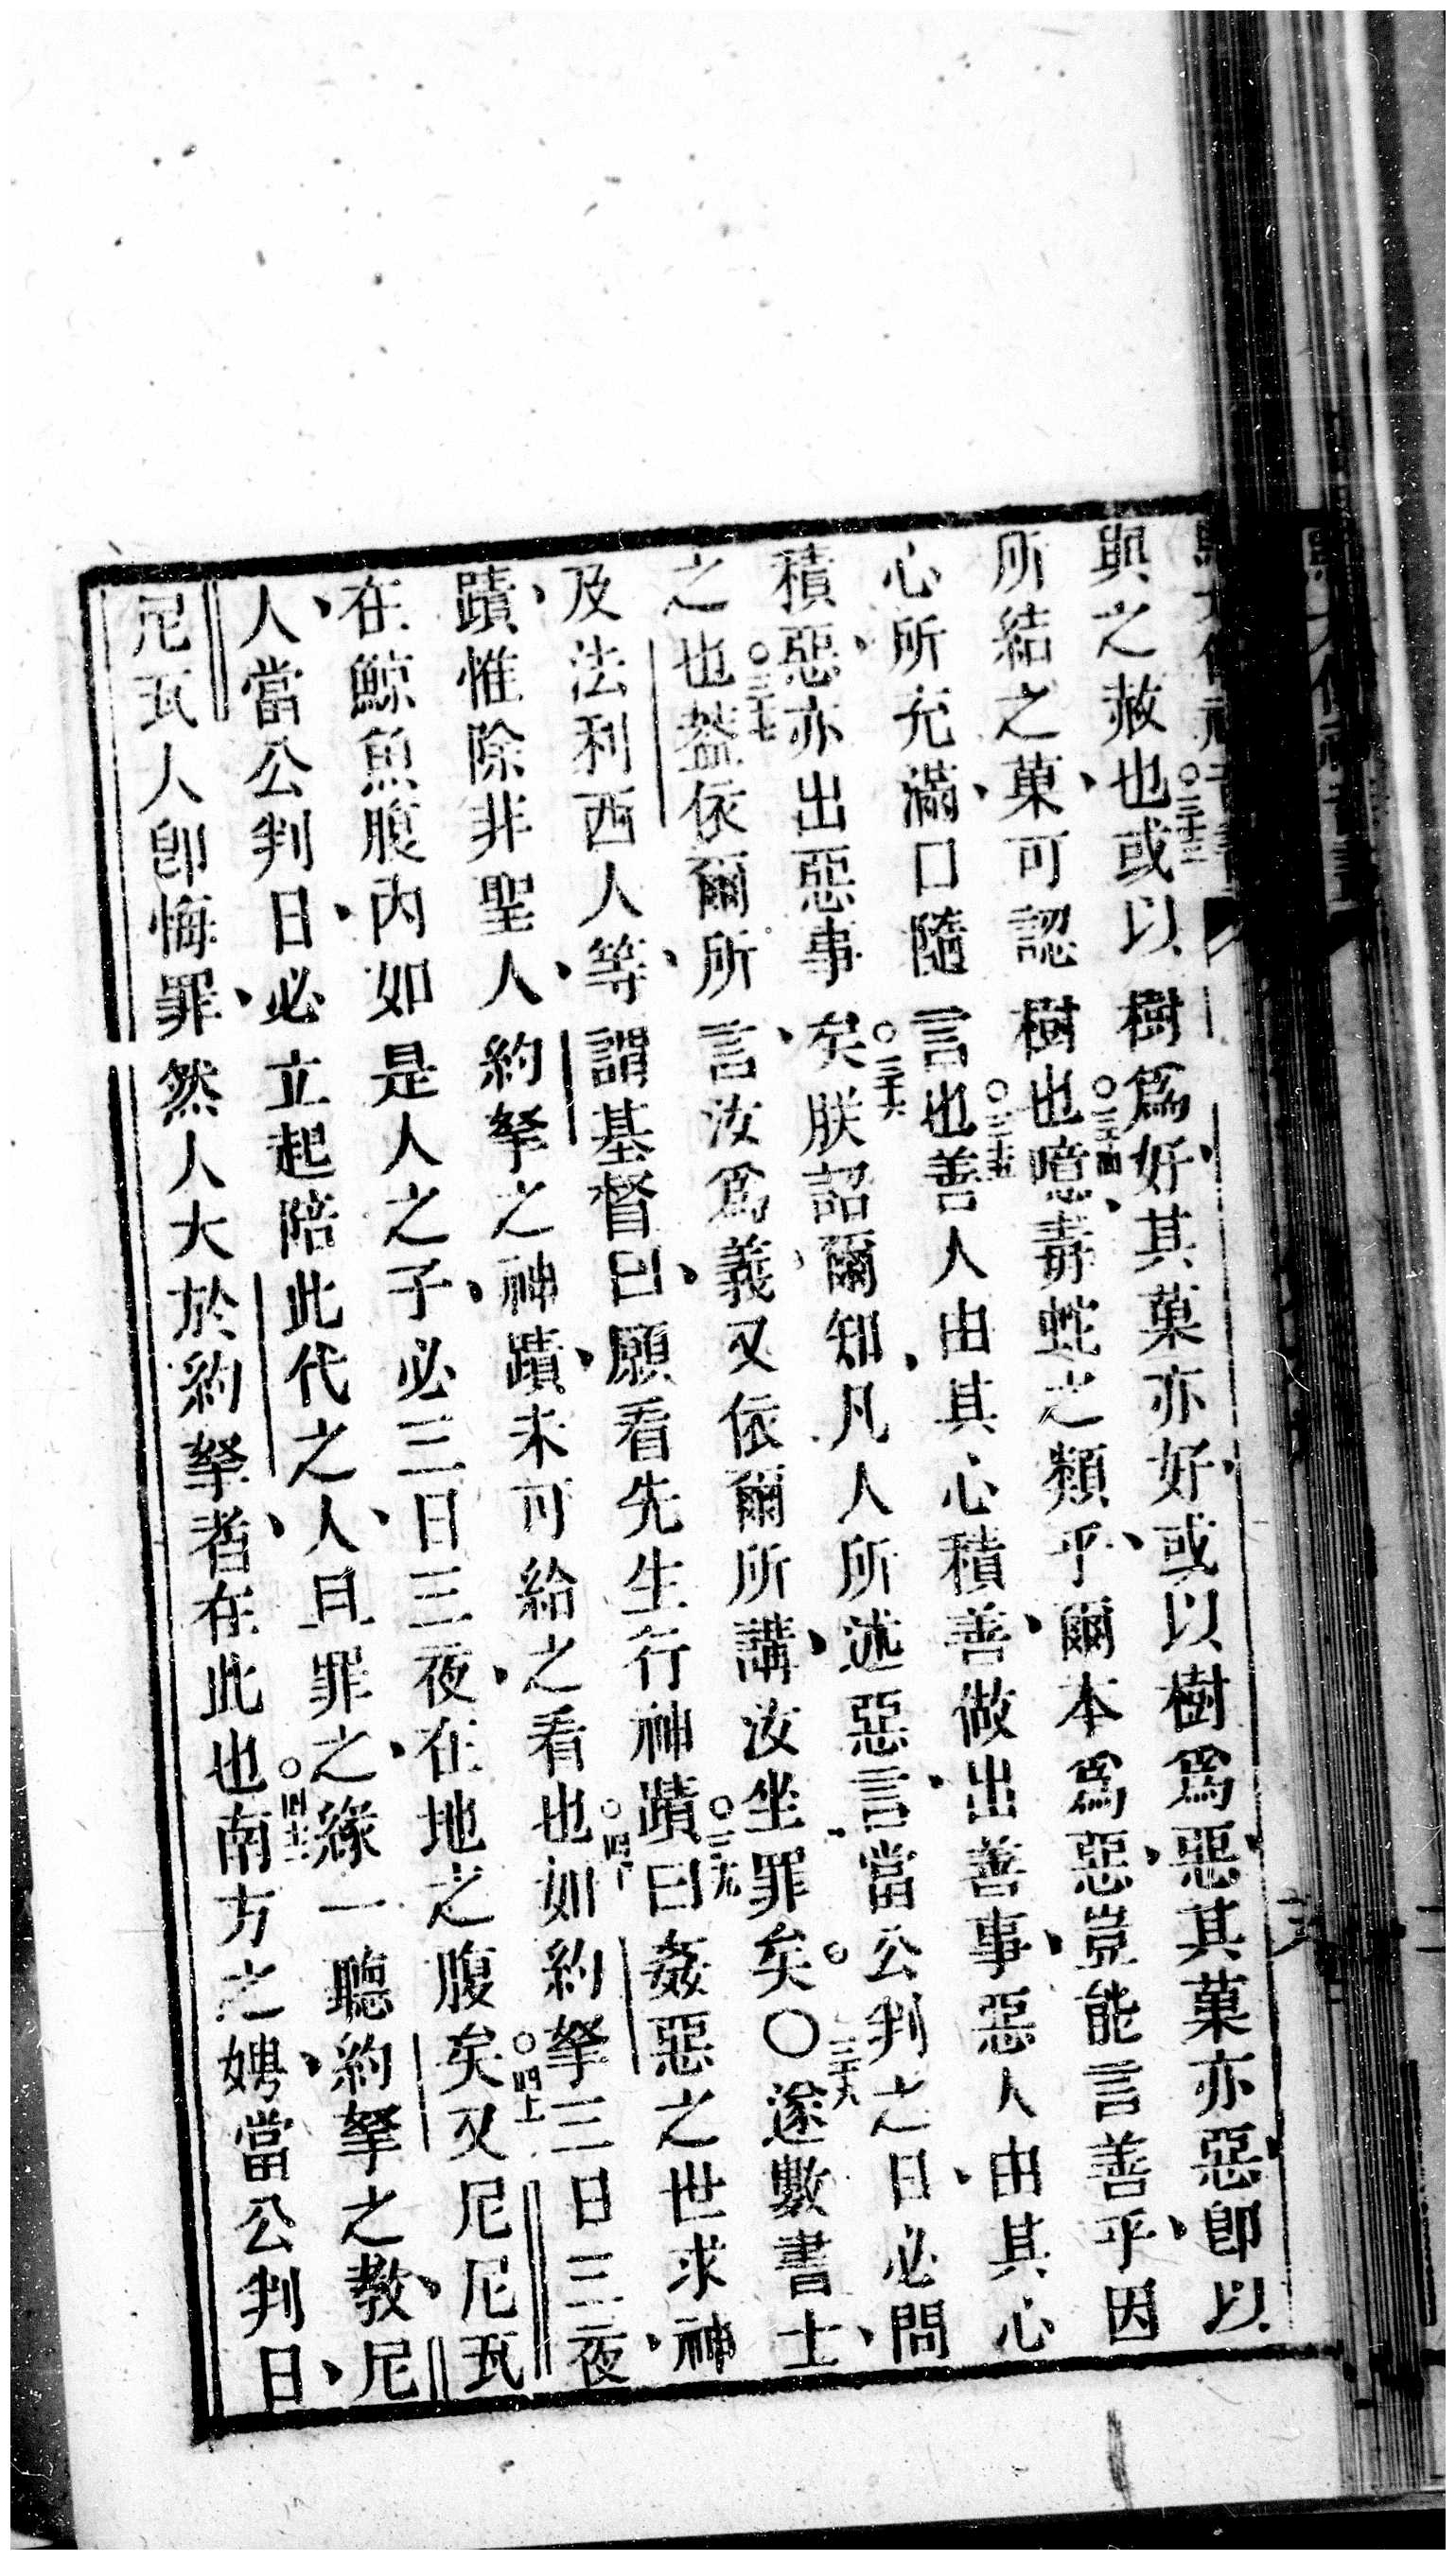 與之赦也○三十三或以樹爲好、其菓亦好、或以樹爲惡、其菓亦惡、卽以
所結之菓、可認樹也○三十四噫、毒蛇之類乎、爾本爲惡、豈能言善乎、因
心所充滿、口隨言也○三十五善人由其心積善、做出善事、惡人由其心
積惡、亦出惡事矣○三十六朕詔爾知、凡人所述惡言、當公判之日、必問
之也○三十七蓋依爾所言、汝爲義、又依爾所講、汝坐罪矣。○三十八遂數書士、
及法利西人等、謂基督曰、願看先生行神蹟○三十九曰姦惡之世求神
蹟、惟除非聖人、約拏之神蹟、未可給之看也○四十如約拏三日三夜、
在鯨魚腹內、如是人之子、必三日三夜、在地之腹矣○四十一又尼尼瓦
人、當公判日、必立起陪此代之人、且罪之、緣一聽約拏之教、尼
尼瓦人卽悔罪、然人大於約拏者、在此也○四十二南方之娉、當公判日、